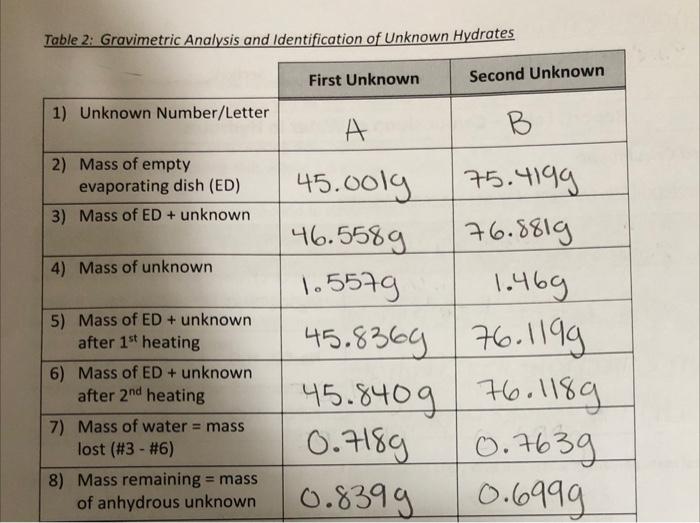 Table 2: Gravimetric Analysis and Identification of Unknown Hydrates
First Unknown Second Unknown
1) Unknown Number/Letter A B
2) Mass of empty
evaporating dish (ED) 45.001g 75.419g
3) Mass of ED + unknown 46.558g 76.881g
4) Mass of unknown 1.557g 1.46g
5) Mass of ED + unknown
after 1st heating 45.836g 76.119g
6) Mass of ED + unknown
after 2nd heating 45.840g 76.118g
7) Mass of water = mass
lost (#3 - #6) 0.718g 0.763g
8) Mass remaining = mass
of anhydrous unknown 0.839g 0.699g